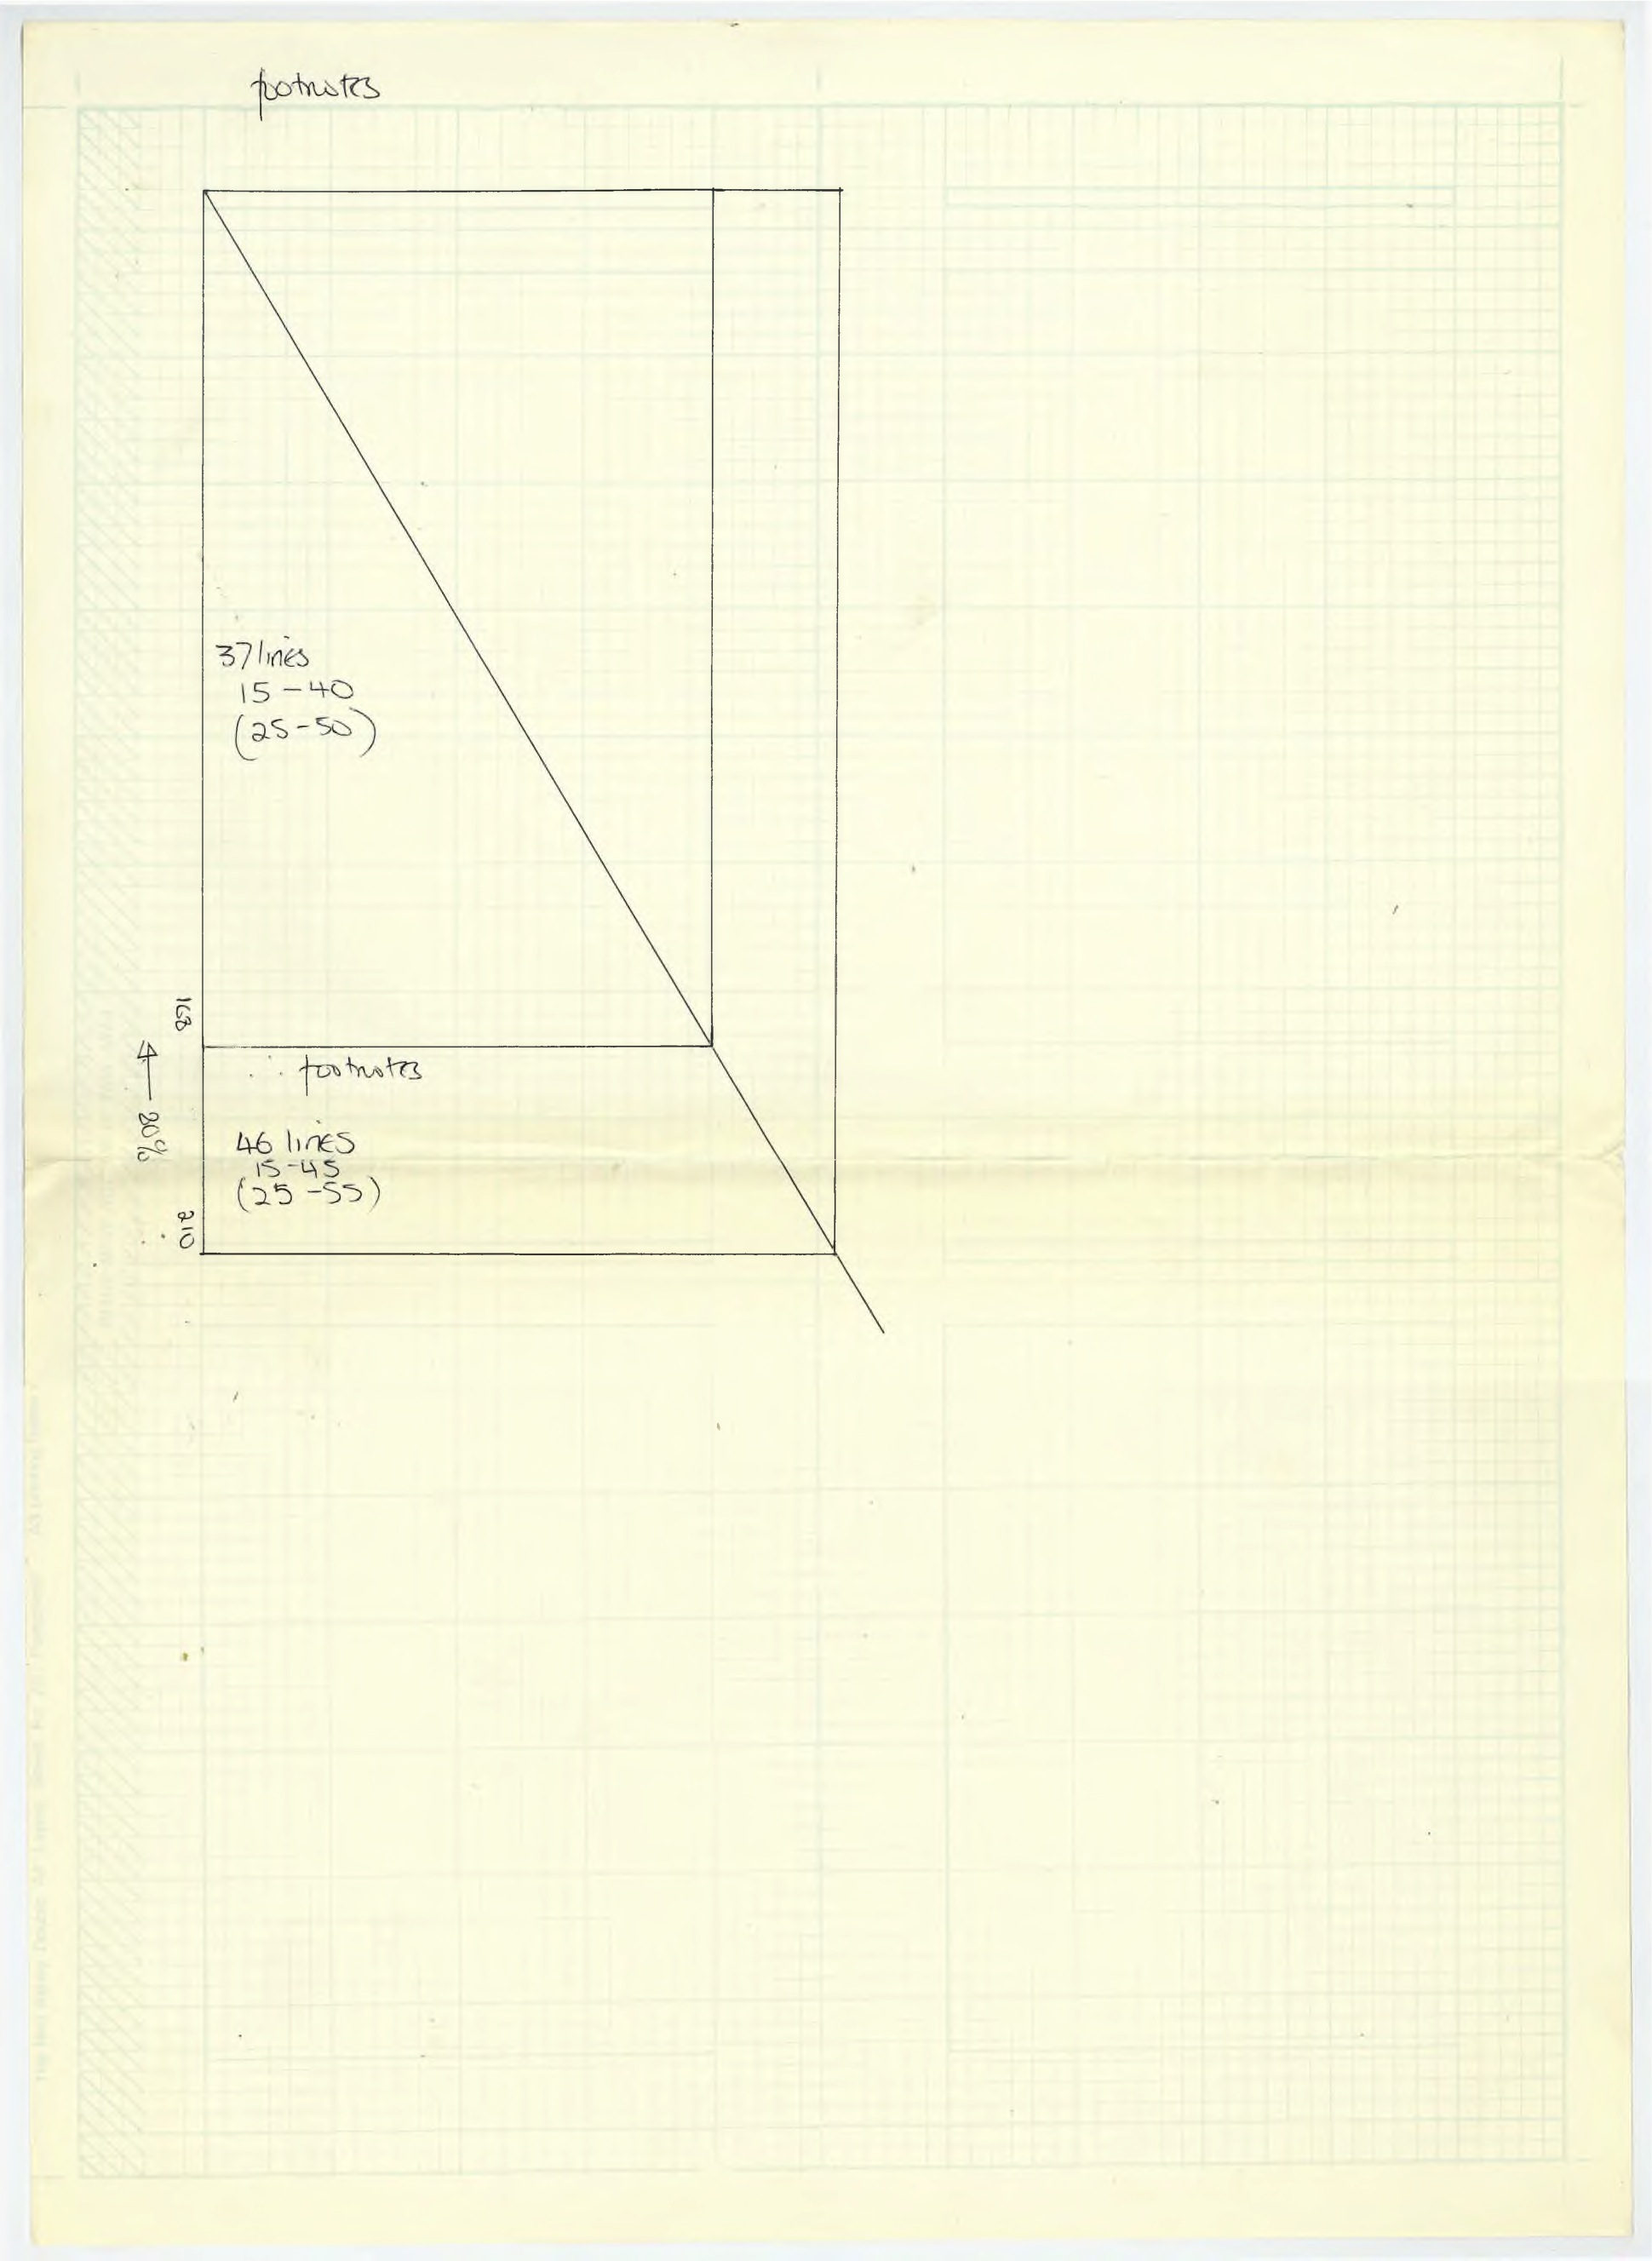 footnotes
37 lines
15 – 40
(25 – 50)
168
footnotes
80%
46 lines
15 – 45
(25 – 55)
210